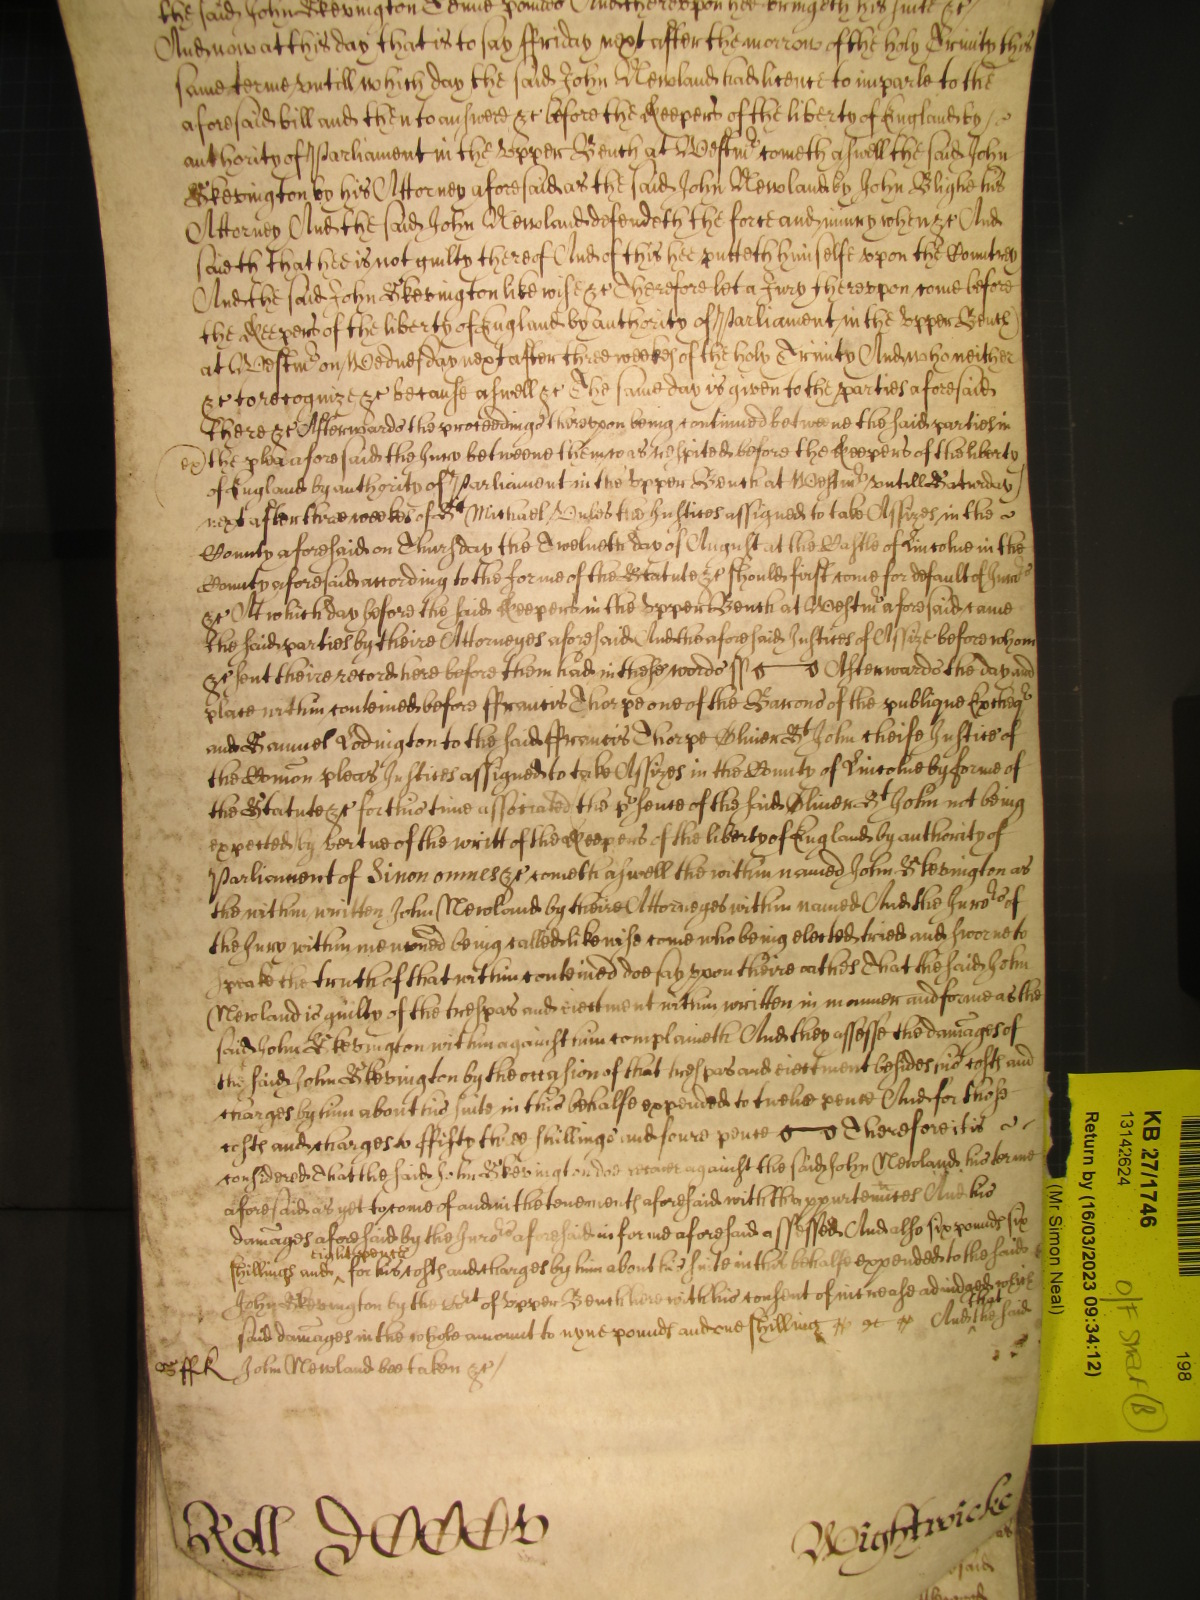 the said John Skevington Tenne pounds And thereupon hee bringeth his suite &c
And now at this day that is to say ffriday next after the morrow of the holy Trinity this
same terme untill which day the said John Newland had licence to imparle to the
aforesaid bill and then to answere &c before the Keepers of the liberty of England by
authority of Parliament in the Upper Bench at Westmr cometh aswell the said John
Skevington by his Attorney aforesaid as the said John Newland by John Blighe his
Attorney And the said John Newland defendeth the force and iniury when &c And
saieth that hee is not guilty thereof And of this hee putteth himselfe upon the Countrey
And the said John Skevington likewise &c Therefore let a Jury thereupon come before
the Keepers of the liberty of England by authority of Parliament in the Upper Bench
at Westmr on Wednesday next after three weekes of the holy Trinity And who neither
&c to recognize &c because aswell &c The same day is given to the parties aforesaid
there &c Afterwards the proceedings thereupon being continued betweene the said parties in
the plea aforesaid the Jury betweene them was respited before the Keepers of the liberty
of England by authority of Parliament in the Upper Bench at Westmr untill Saturday
next after three weekes of St Michael Unles the Justices assigned to take Assizes in the
County aforesaid on Thursday the Twelveth day of August at the Castle of Lincolne in the
County aforesaid according to the forme of the Statute &c should first come for default of Jurors
&c At which day before the said Keepers in the Upper Bench at Westmr aforesaid came
the said parties by theire Attorneyes aforesaid And the aforesaid Justices of Assize before whom
&c sent theire record here before them had in these words ss Afterwards the day and
place within conteined before ffrancis Thorpe one of the Barons of the publique Excheqr
and Samuel Lodington to the said ffrancis Thorpe Oliver St John cheife Justice of
the Comon pleas Justices assigned to take Assizes in the County of Lincolne by forme of
the Statute &c for this time associated the psence of the said Oliver St John not being
expected by vertue of the writt of the Keepers of the liberty of England by authority of
Parliament of Si non omnes &c cometh aswell the within named John Skevington as
the within written John Newland by theire Attorneyes within named And the Jurors of
the Jury within menconed being called likewise come who being elected tried and sworne to
speake the truth of that within conteined doe say upon theire oathes That the said John
Newland is guilty of the trespas and eiectment within written in manner and forme as the
said John Skevington within against him complaineth And they assesse the damages of
the said John Skevington by the occasion of that trespas and eiectment besides his costs and
charges by him about his suite in this behalfe expended to twelve pence And for those
costs and charges to ffifty three shillings and foure pence Therefore it is
considered That the said John Skevington doe recover against the said John Newland his terme
aforesaid as yet to come of and in the tenements aforesaid with thappurtennces And his
damages aforesaid by the Jurors aforesaid in forme aforesaid assessed And also six pounds six
shillings and eight pence for his costs and charges by him about his suite in this behalfe expended to the said
John Skevington by the Court of Upper Bench here with his consent of increase adiudged which
said damages in the whole amount to nyne pounds and one shilling And that the said
John Newland bee taken &c
Roll
Wightwicke
KB 27/1746
13142624
Return by (16/03/2023 09:34:12)
(Mr Simon Neal)
198